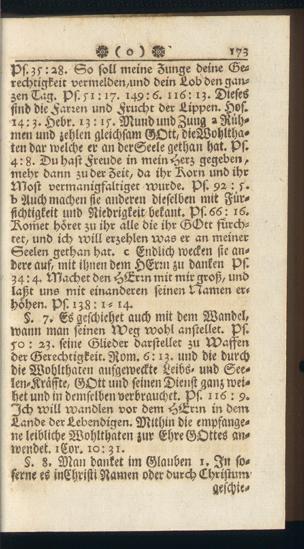 ❀ ( o ) ❀ 173
Ps. 35: 28. So soll meine Zunge deine Ge-
rechtigkeit vermelden, und dein Lob den gan-
zen Tag. Ps. 51: 17. 149: 6. 116: 13. Dieses
sind die Farren und Frucht der Lippen. Hos.
14: 3. Hebr. 13: 15. Mund und Zung a Rüh-
men und zehlen gleichsam GOtt, die Wohltha-
ten dar welche er an der Seele gethan hat. Ps.
4: 8. Du hast Freude in mein Herz gegeben,
mehr dann zu der Zeit, da ihr Korn und ihr
Most vermanigfaltiget wurde. Ps. 92: 5.
b Auch machen sie anderen dieselben mit Für-
sichtigkeit und Niedrigkeit bekant. Ps. 66: 16.
Komet höret zu ihr alle die ihr GOtt fürch-
tet, und ich will erzehlen was er an meiner
Seelen gethan hat. c Endlich wecken sie an-
dere auf, mit ihnen dem HErrn zu danken Ps.
34: 4. Machet den HErrn mit mir groß, und
laßt uns mit einanderen seinen Namen er-
höhen. Ps. 138: 1-14.
§. 7. Es geschiehet auch mit dem Wandel,
wann man seinen Weg wohl anstellet. Ps.
50: 23. seine Glieder darstellet zu Waffen
der Gerechtigkeit. Rom. 6: 13. und die durch
die Wohlthaten aufgeweckte Leibs- und See-
len-Kräfte, GOtt und seinen Dienst ganz wei-
het und in demselben verbrauchet. Ps. 116: 9.
Ich will wandlen vor dem HErrn in dem
Lande der Lebendigen. Mithin die empfange-
ne leibliche Wohlthaten zur Ehre GOttes an-
wendet. 1 Cor. 10: 31.
§. 8. Man danket im Glauben 1. In so-
ferne es in Christi Namen oder durch Christum
geschie-